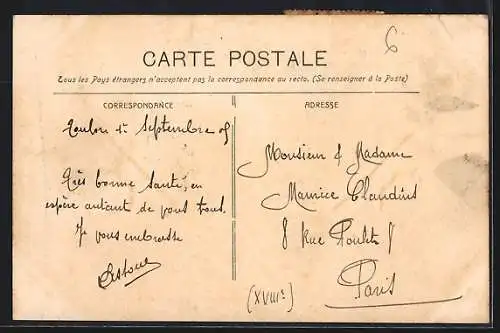 6
CARTE POSTALE
Tous les Pays étrangers n'acceptent pas la correspondance au recto. (Se renseigner à la Poste)
CORRESPONDANCE
ADRESSE
Toulon Septembre 05
Monsieur & Madame
Très bonne santé, en
Maurice Claudius
espère autant de vous tous.
8 Rue
Je vous embrasse
Paris
(XVIIIe)